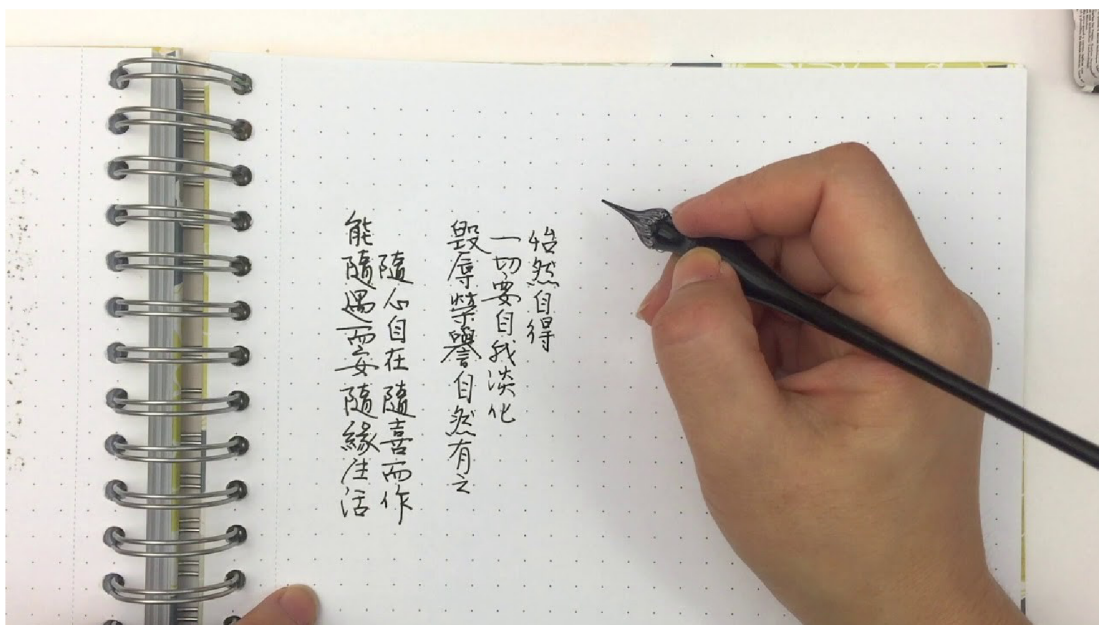 怡然自得
一切要自我淡化
毀辱榮譽自然有之
隨心自在隨喜而作
能隨遇而安隨緣生活